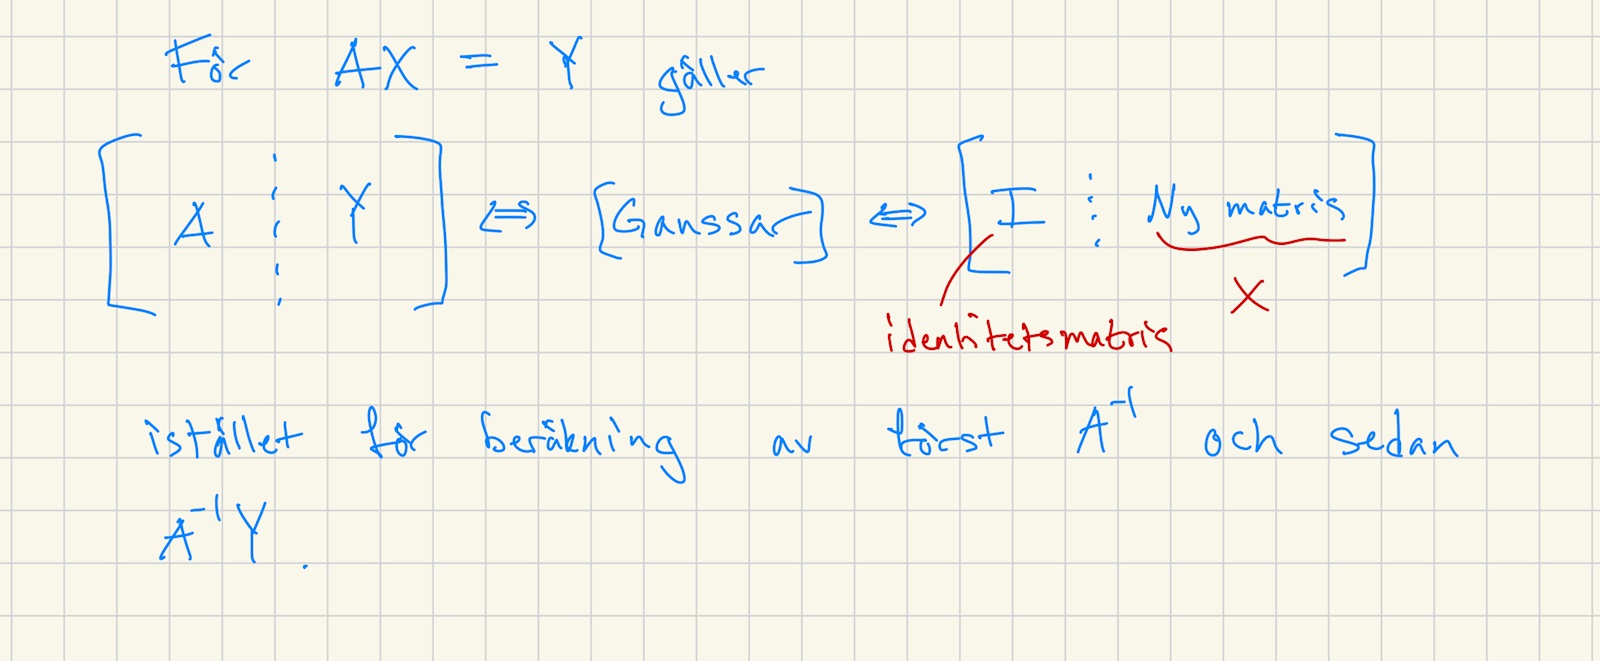 För AX = Y gäller
[ A ⋮ Y ] ⇔ [Gaussar] ⇔ [ I ⋮ Ny matris ]
X
identitetsmatris
istället för beräkning av först A⁻¹ och sedan
A⁻¹Y.